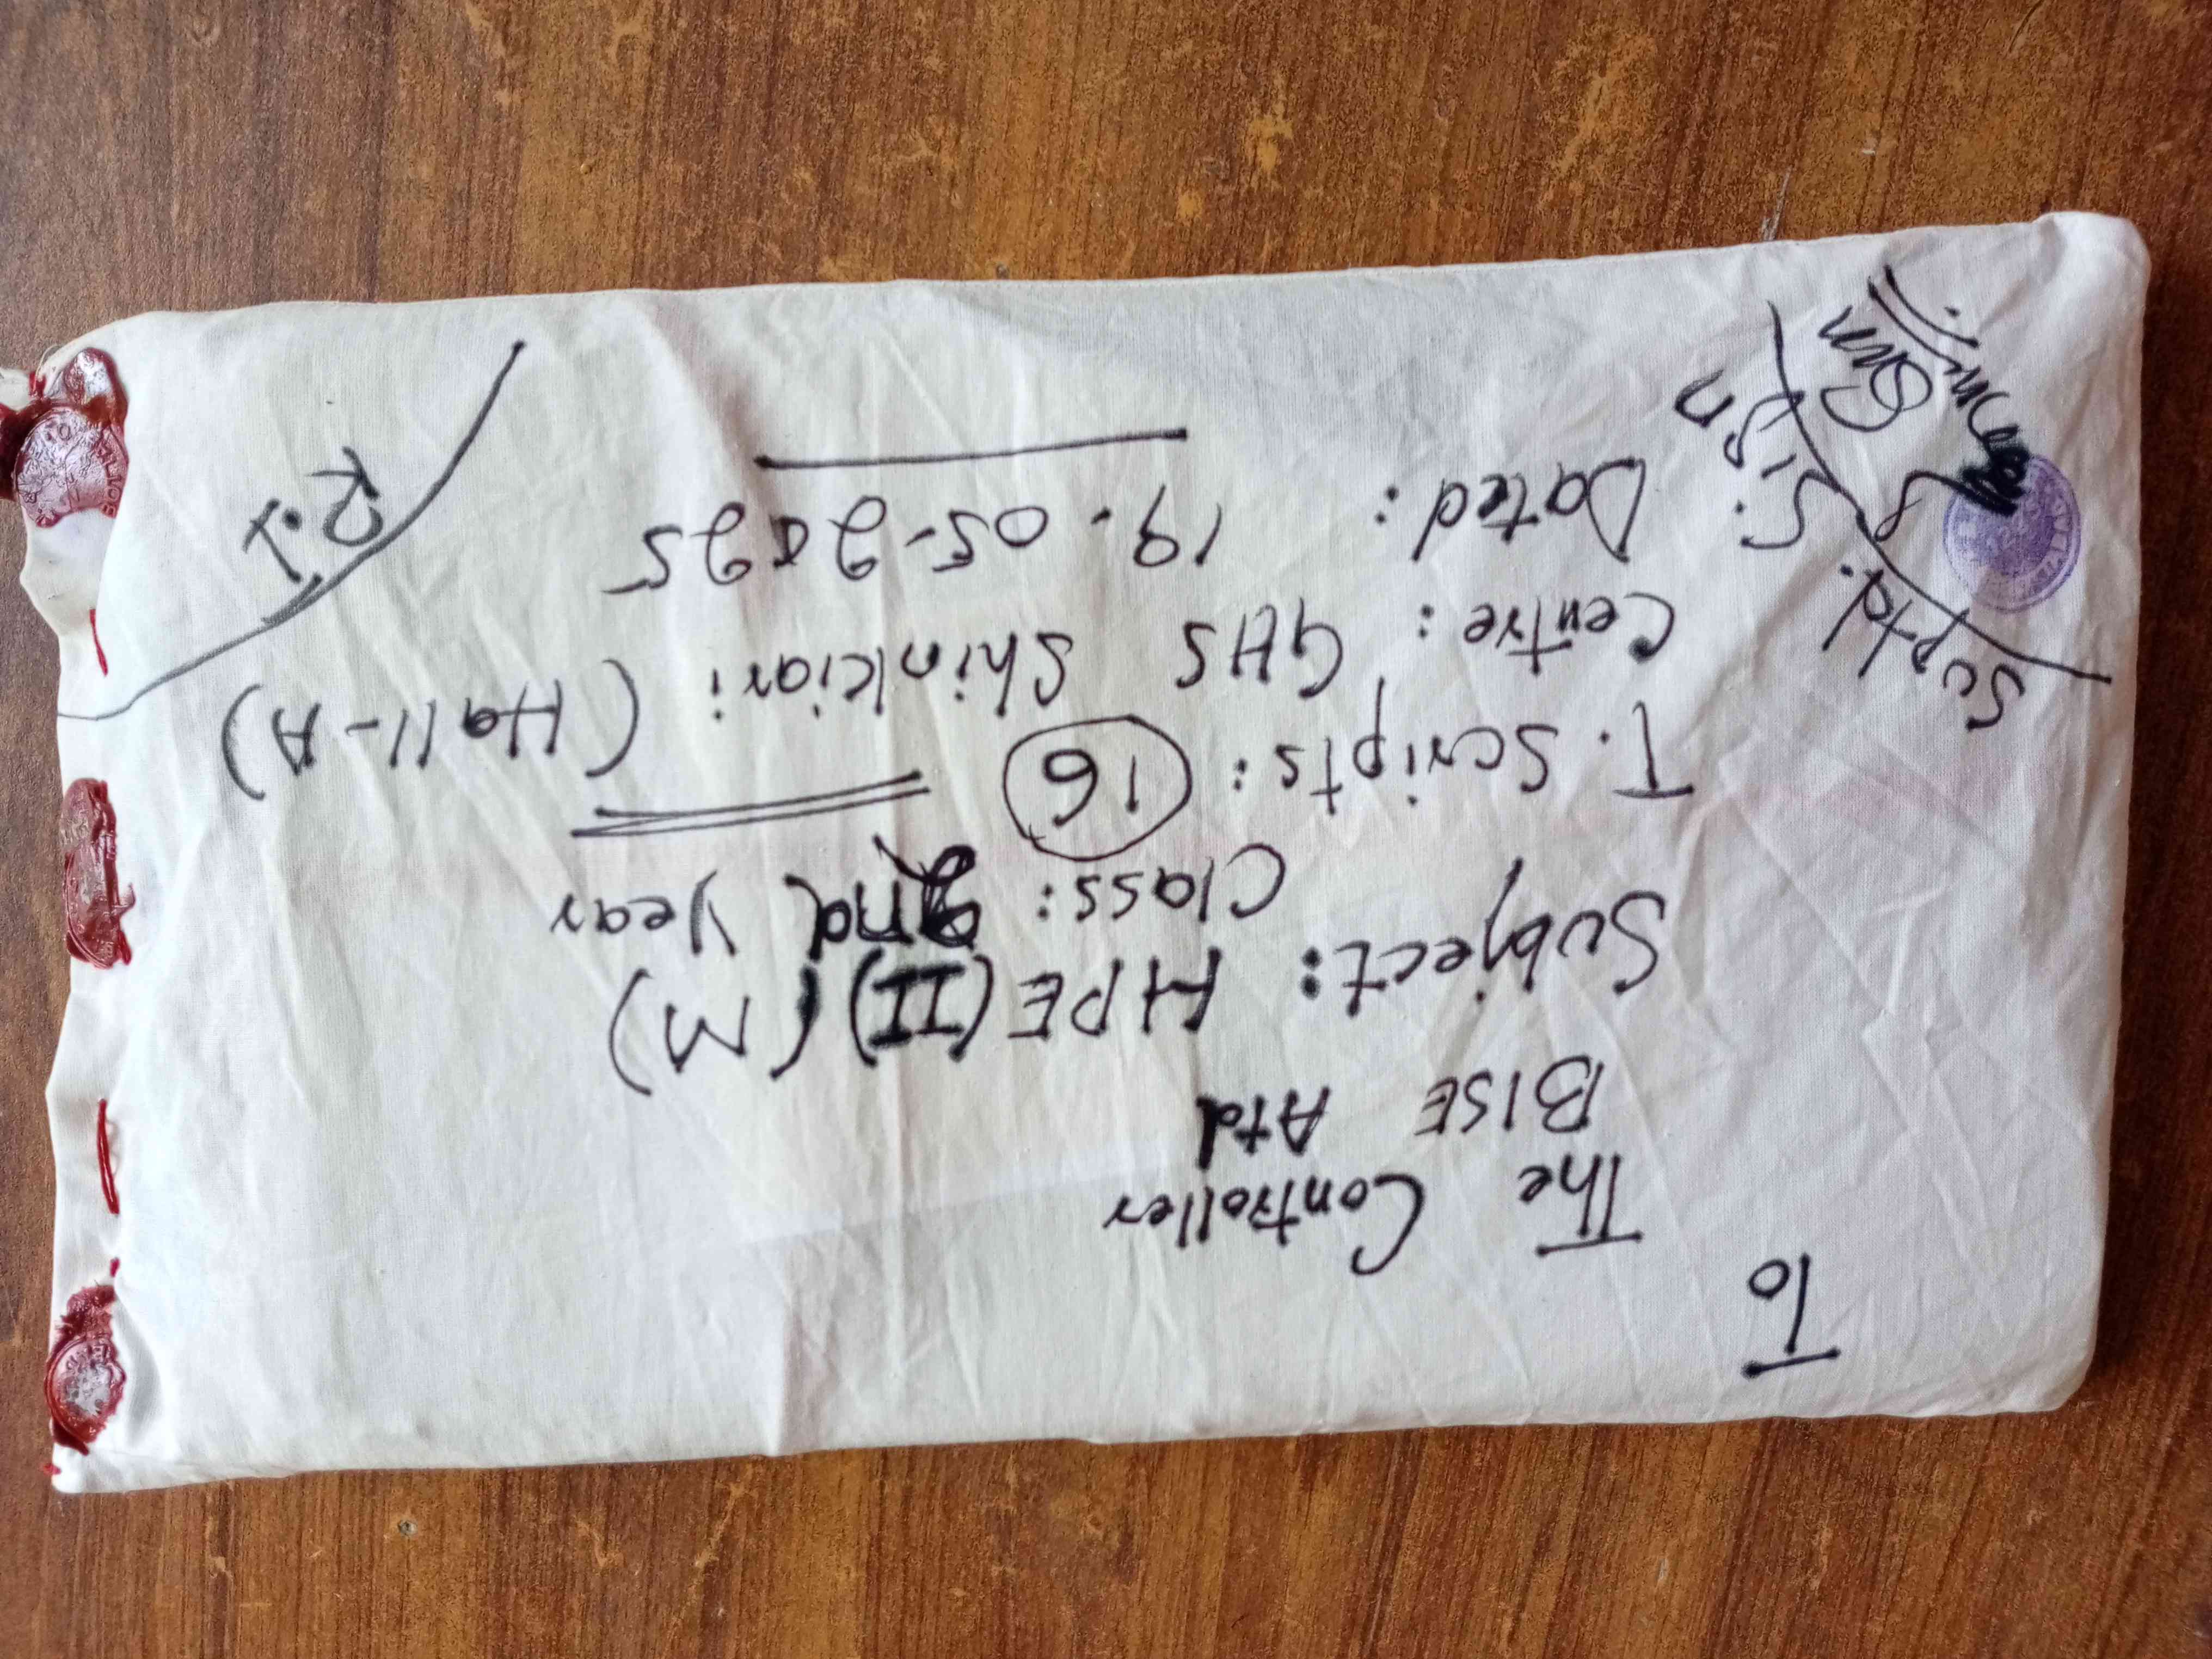 To
The Controller
BISE Atd
Subject: HPE (II) (M)
Class: 2nd year
T. Scripts: 16
Centre: GHS Shinkiari (Hall-A)
Dated: 19-05-2025
Suptd.
S. Sign
R.I